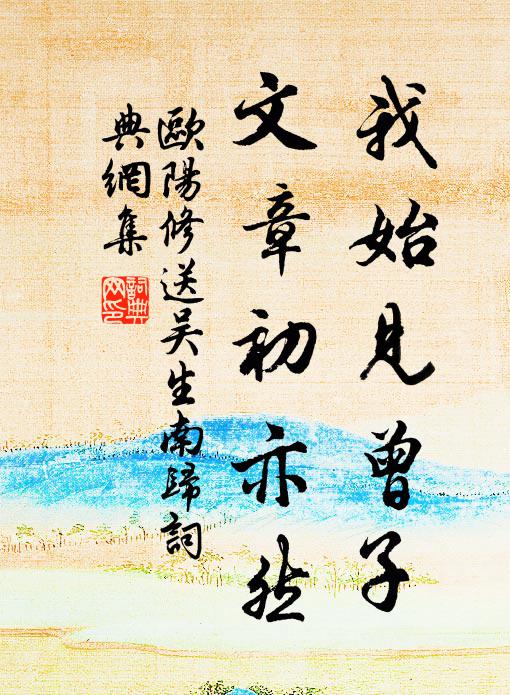 我始見曾子
文章初亦然
歐陽修送吴生南歸詞
典網集
詞典
网印